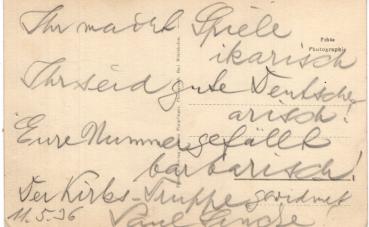 Ihr macht Spiele
ikarisch
Echte
Photographie
Ihr seid gute Deutsche,
arisch!
Eure Nummer gefällt
barbarisch!
Der Kirks-Truppe gewidmet
11.5.36 Paul Lincke